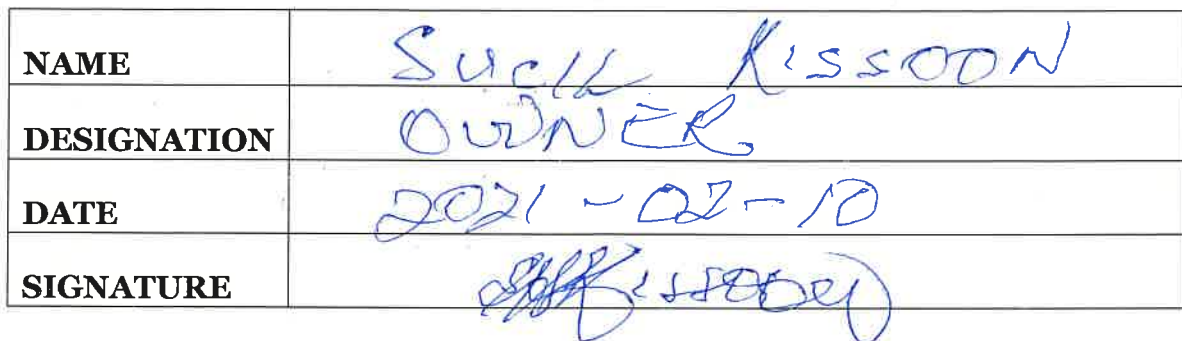 NAME Sucik KISSOON
DESIGNATION OWNER
DATE 2021-02-10
SIGNATURE Kissoon